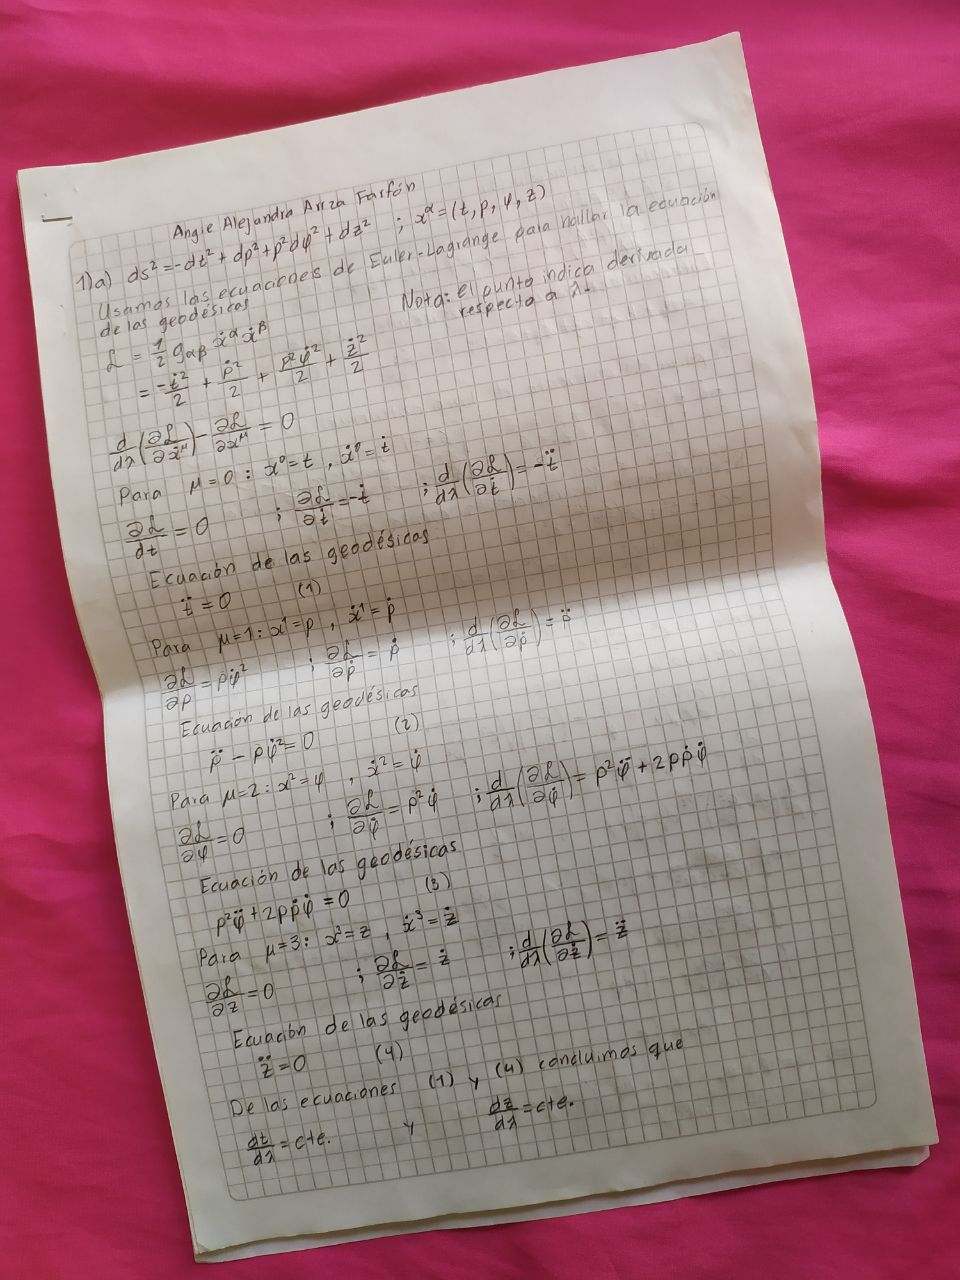 Angie Alejandra Ariza Farfón
1)a) ds² = -dt² + dρ² + ρ²dφ² + dz² ; x^α = (t, ρ, φ, z)
Usamos las ecuaciones de Euler-Lagrange para hallar la ecuación
de las geodésicas
Nota: el punto indica derivada
respecto a λ.
ℒ = 1/2 g_αβ ẋ^α ẋ^β
= -ṫ²/2 + ρ̇²/2 + ρ²φ̇²/2 + ż²/2
d/dλ(∂ℒ/∂ẋ^μ) - ∂ℒ/∂x^μ = 0
Para μ=0 : x⁰=t , ẋ⁰=ṫ
∂ℒ/dt = 0 ; ∂ℒ/∂ṫ = -ṫ ; d/dλ(∂ℒ/∂ṫ) = -ẗ
Ecuación de las geodésicas
ẗ = 0 (1)
Para μ=1 : x¹=ρ , ẋ¹=ρ̇
∂ℒ/∂ρ = ρφ̇² ; ∂ℒ/∂ρ̇ = ρ̇ ; d/dλ(∂ℒ/∂ρ̇) = ρ̈
Ecuación de las geodésicas
ρ̈ - ρφ̇² = 0 (2)
Para μ=2 : x²=φ , ẋ²=φ̇
∂ℒ/∂φ = 0 ; ∂ℒ/∂φ̇ = ρ²φ̇ ; d/dλ(∂ℒ/∂φ̇) = ρ²φ̈ + 2ρρ̇φ̇
Ecuación de las geodésicas
ρ²φ̈ + 2ρρ̇φ̇ = 0 (3)
Para μ=3 : x³=z , ẋ³=ż
∂ℒ/∂z = 0 ; ∂ℒ/∂ż = ż ; d/dλ(∂ℒ/∂ż) = z̈
Ecuación de las geodésicas
z̈ = 0 (4)
De las ecuaciones (1) y (4) concluimos que
dt/dλ = cte. y dz/dλ = cte.